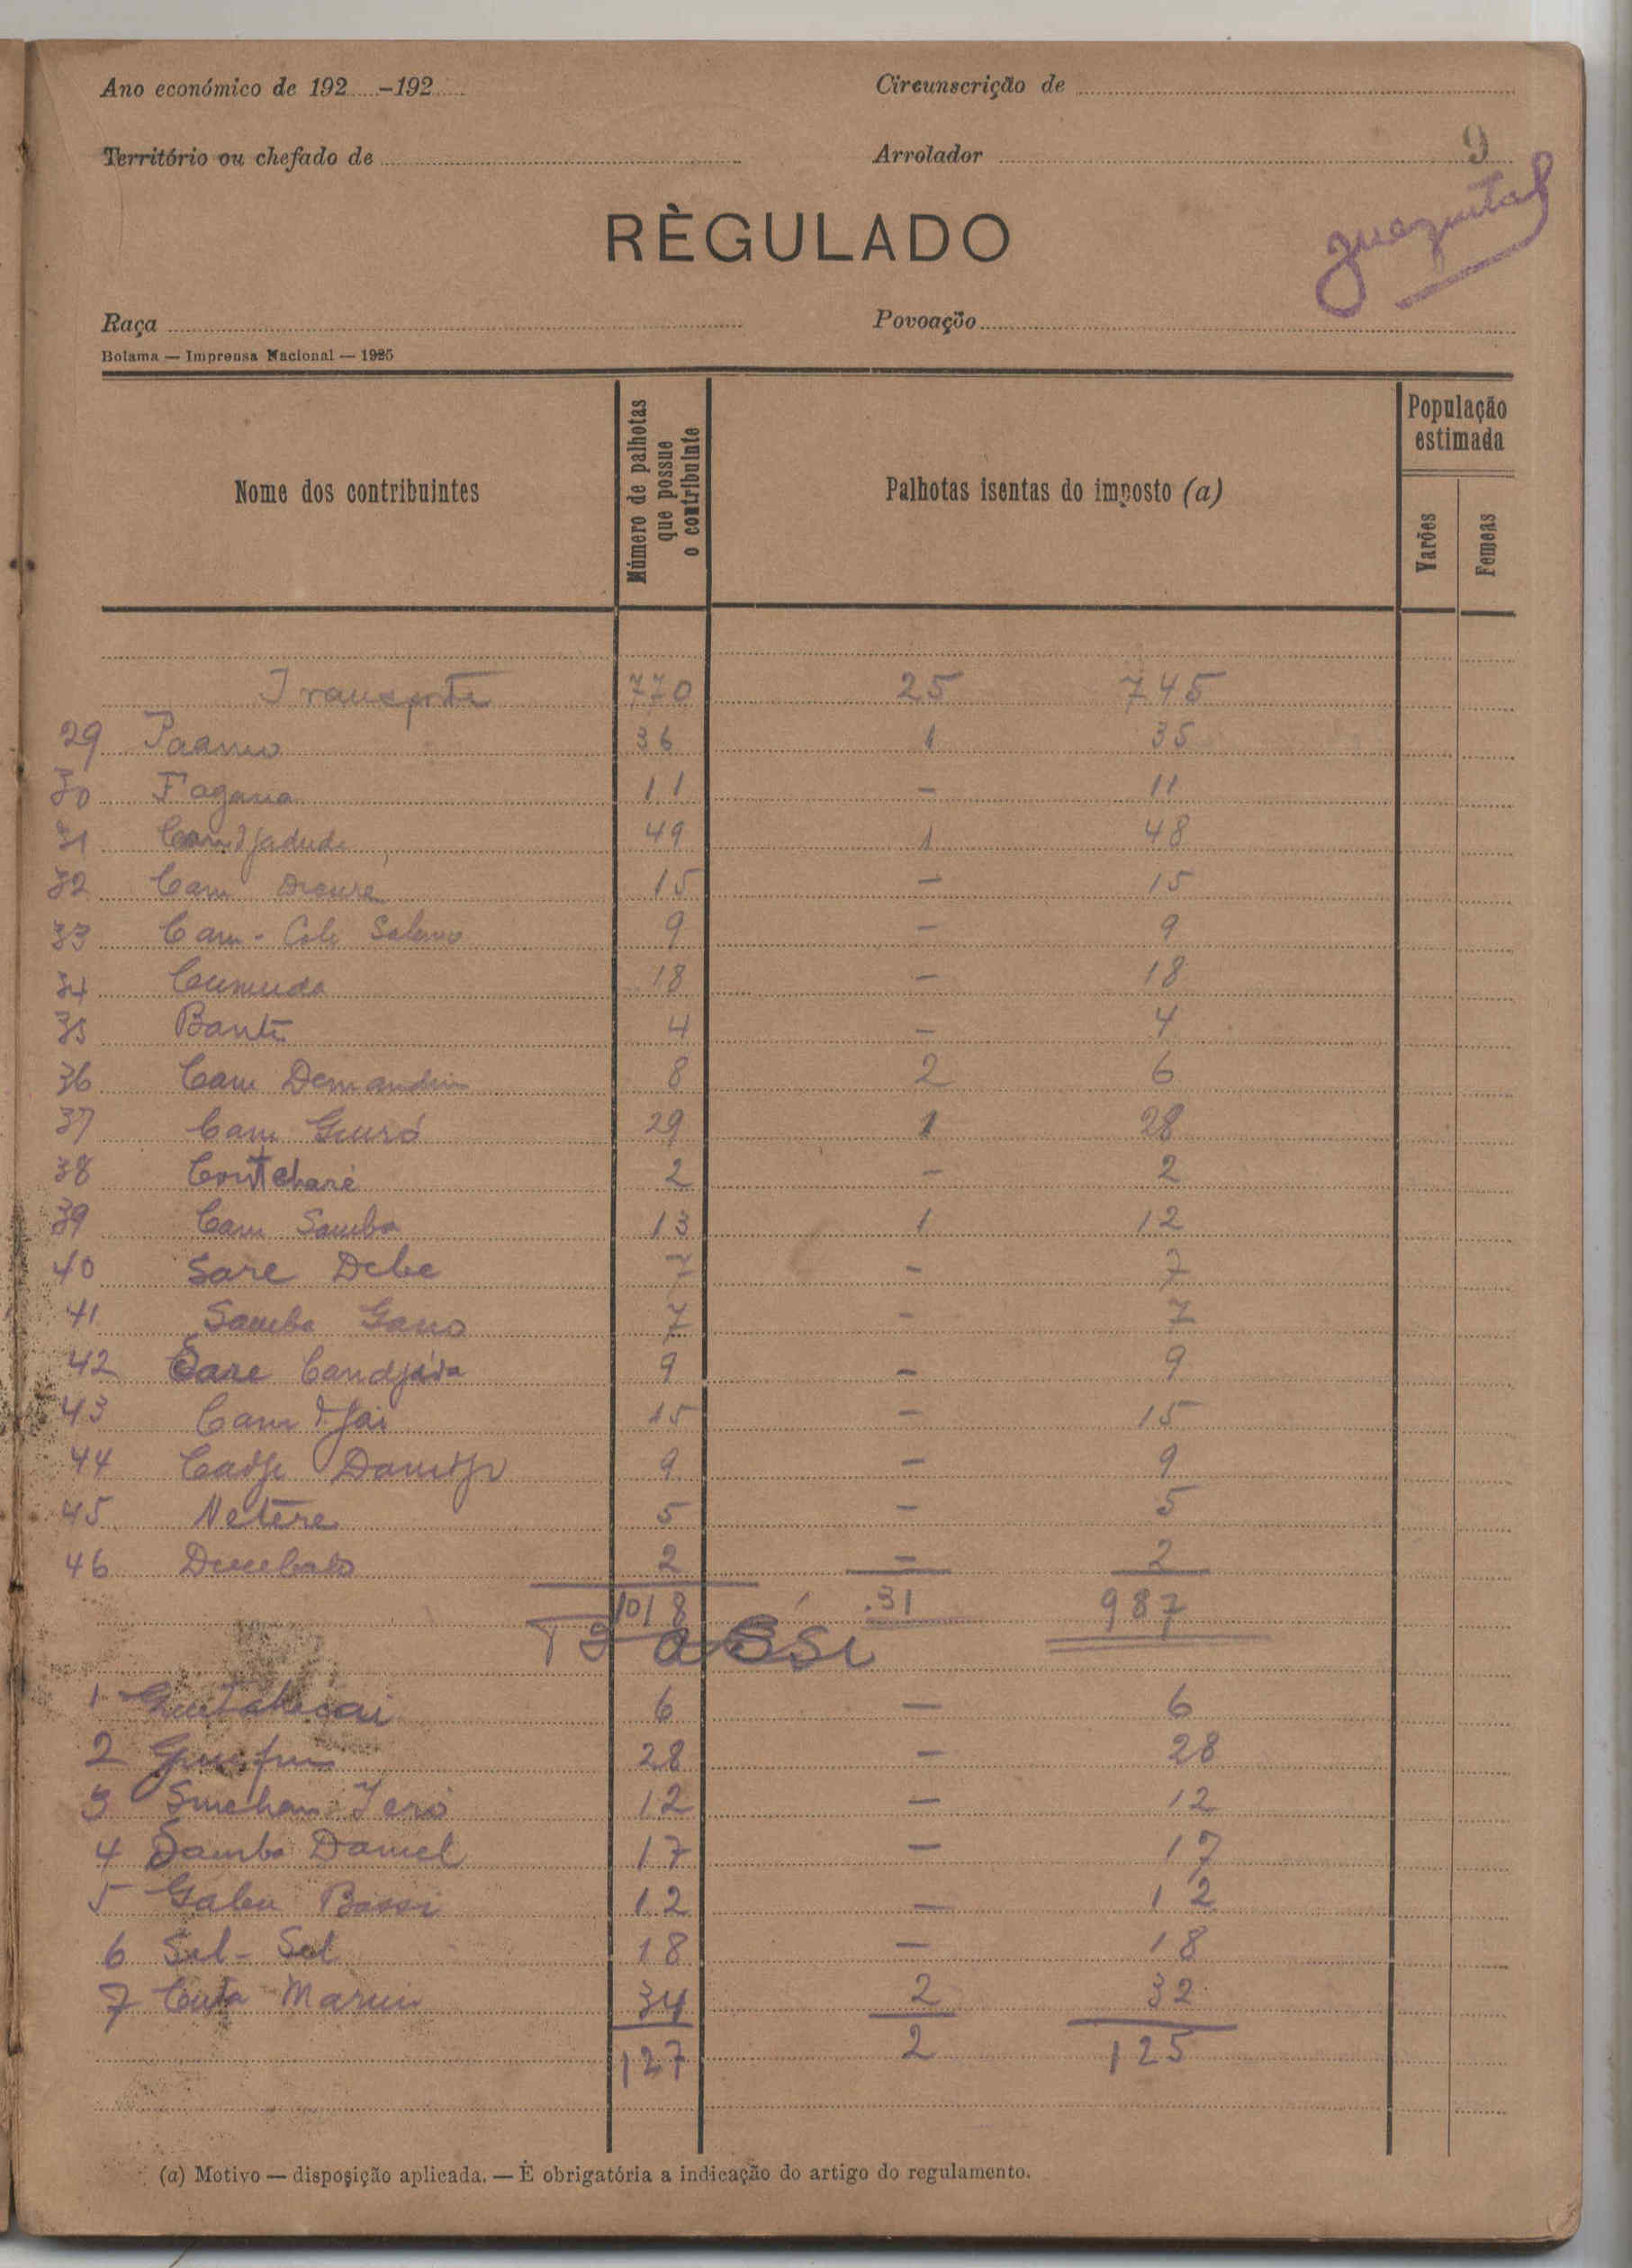 Ano económico de 192.....-192.....
Circunscrição de
Território ou chefado de
Arrolador
9
RÈGULADO
Raça
Povoação
Bolama — Imprensa Nacional — 1925
Nome dos contribuintes
Número de palhotas que possue o contribuinte
Palhotas isentas do imposto (a)
População estimada
Varões
Femeas
Transporte 770 25 745
29 Paamo 36 1 35
30 Fagana 11 - 11
31 49 1 48
32 Cam 15 - 15
33 Cam - 9 - 9
34 Cumuda 18 - 18
35 Bante 4 - 4
36 Cam 8 2 6
37 Cam Guiró 29 1 28
38 Contcharé 2 - 2
39 Cam Samba 13 1 12
40 Sare Debe 7 - 7
41 Samba Gano 7 - 7
42 Sare Candjáda 9 - 9
43 Cam 15 - 15
44 9 - 9
45 Netere 5 - 5
46 2 - 2
1018 31 987
1 6 - 6
2 28 - 28
3 12 - 12
4 Samba Daniel 17 - 17
5 Gabu Bassi 12 - 12
6 Sel-Sel 18 - 18
7 34 2 32
127 2 125
(a) Motivo — disposição aplicada. — É obrigatória a indicação do artigo do regulamento.